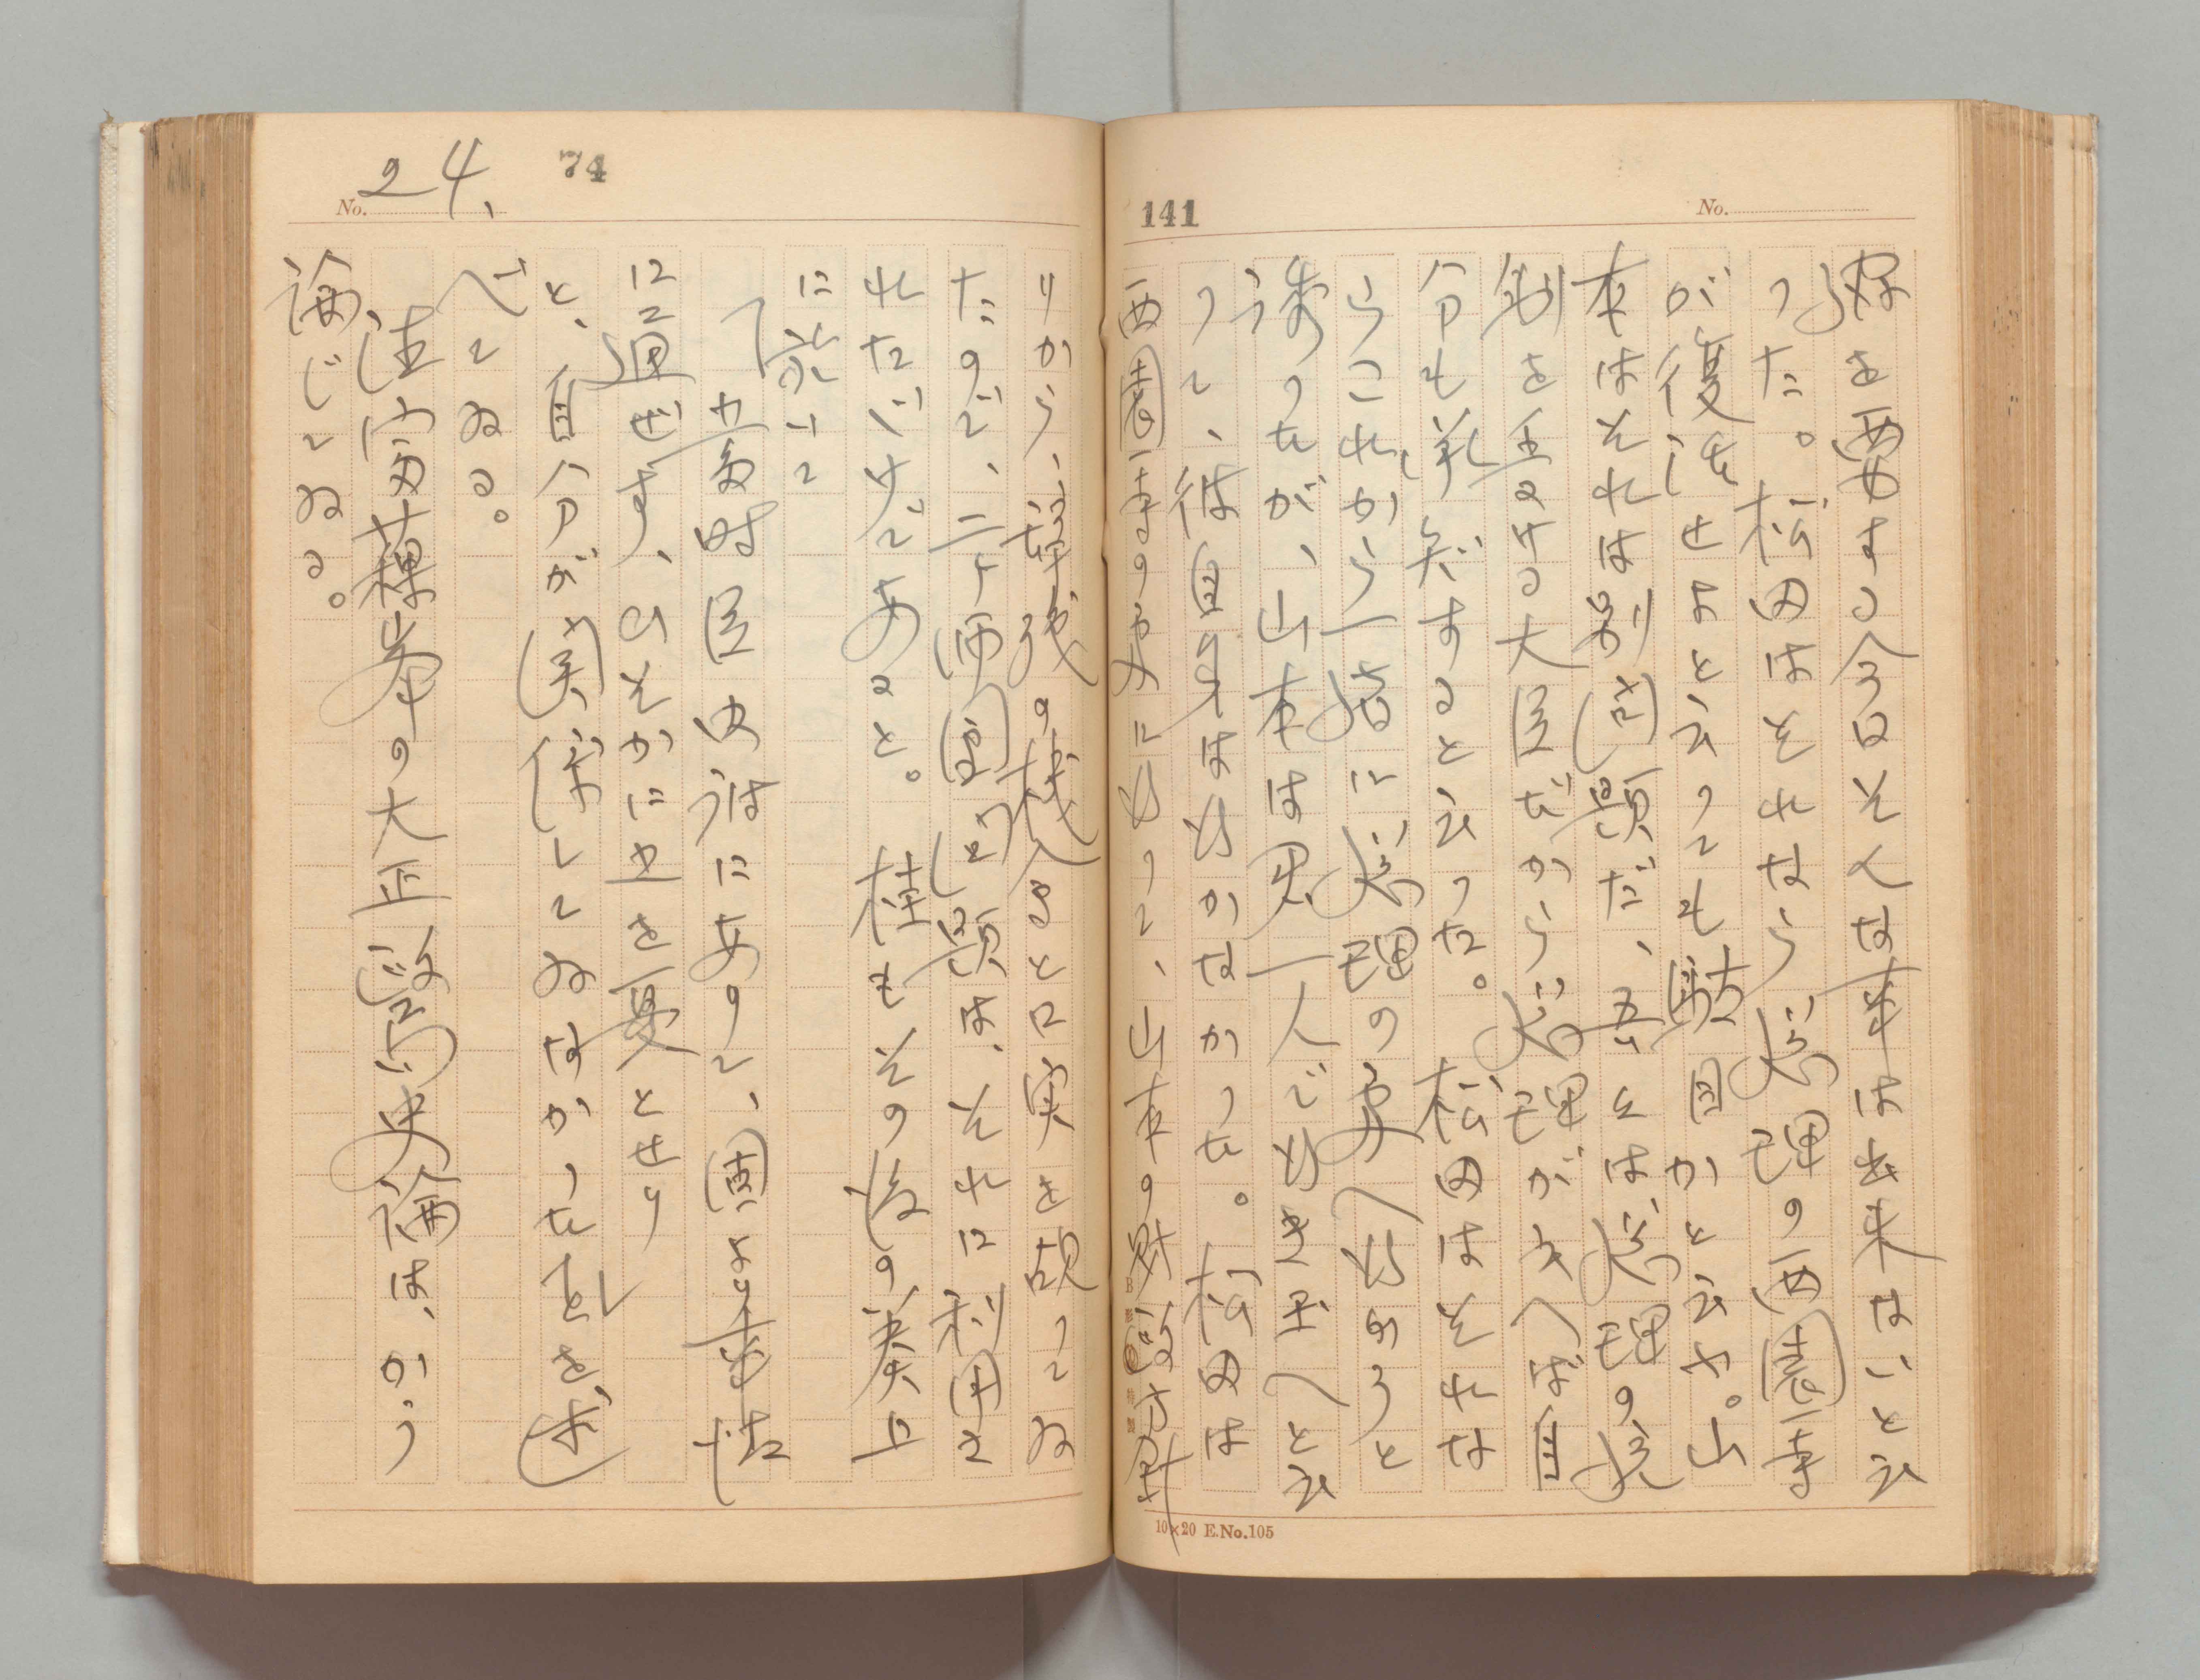 No.
141
を要する今日そんな事は出来ないと云
つた。松田はそれなら総理の西園寺
が復活せよと云つても駄目かと云ふ。山
本はそれは別問題だ、吾々は総理の統
制を受ける大臣だから総理が云へば自
分もすると云つた。松田はそれな
らこれから一諸に総理の処へ行かうと
誘つたが、山本は君一人で行き玉へと云
つて、彼自身は行かなかつた。松田は
西園寺の処に行つて、山本の財政
10×20 E.No.105
No. 24.
74
りから、の と口実を つてゐ
たので、二ケ師団問題は、それに利用さ
れたゞけであると。桂もその後の奏上
に於いて
「当時臣内府にありて、固より事情
に通ぜず、ひそかに之を憂とせり
と、自分が関係してゐなかつたことを述
べてゐる。
徳富蘇峰の大正政局史論は、かう
論じてゐる。